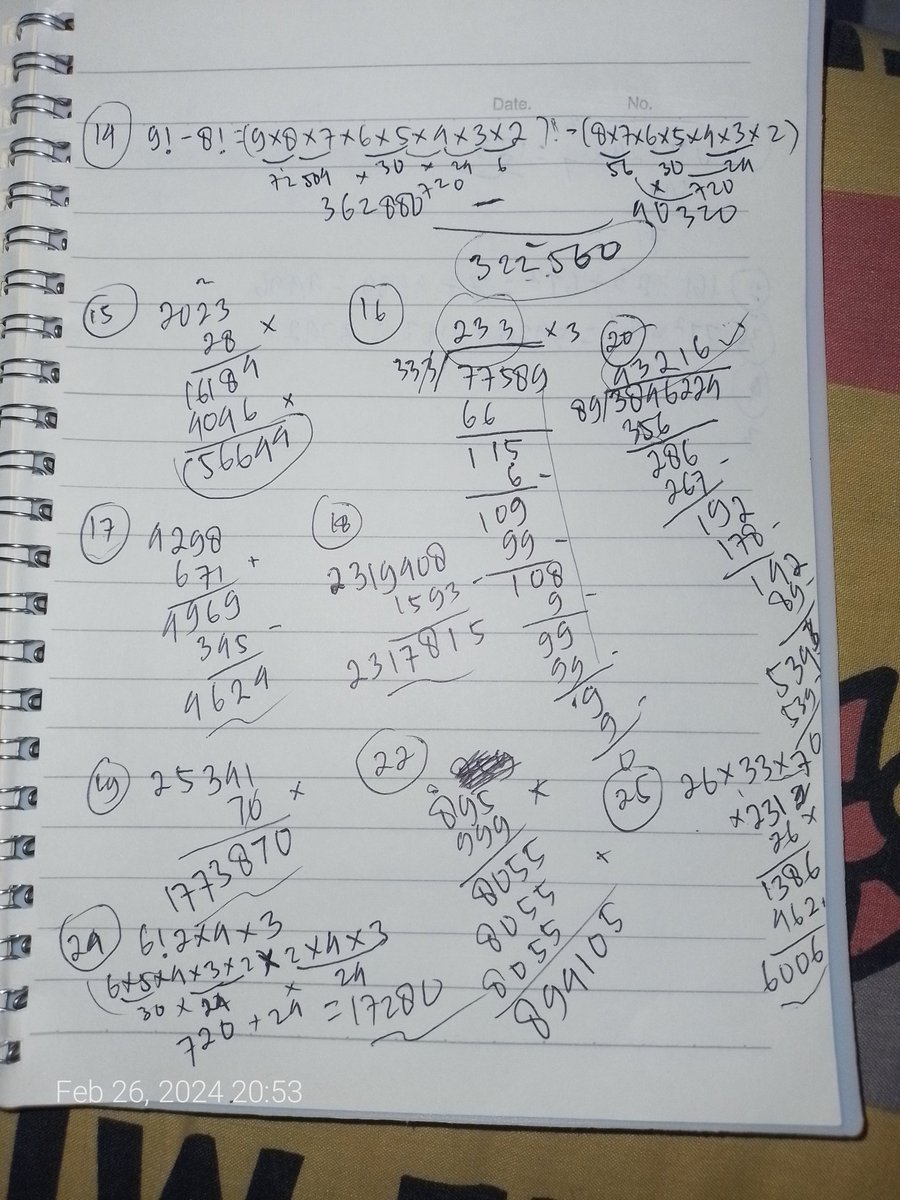 Date. No.
14 9! - 8! = (9×8×7×6×5×4×3×2)! - (8×7×6×5×4×3×2)
72 504 × 30 × 24 6 56 30 24
720 × 720
362880 - 40320
322.560
15 2023
28 ×
16184
4046 ×
56644
16 233 × 3
333 77589
66
115
6 -
109
99 -
108
9 -
99
99 -
9
9 -
0
20 43216
89 3846224
356
286
267 -
192
178 -
142
89 -
534
534
0
17 4298
671 +
4969
345 -
4624
18
2319408
1593 -
2317815
19 25341
70 ×
1773870
22
895 ×
999
8055 ×
8055
8055
894105
25 26×33×7
×231
26 ×
1386
462
6006
24 6!2×4×3
6×5×4×3×2×2×4×3
30 × 24 × 24
720 + 24 = 17280
Feb 26, 2024 20:53